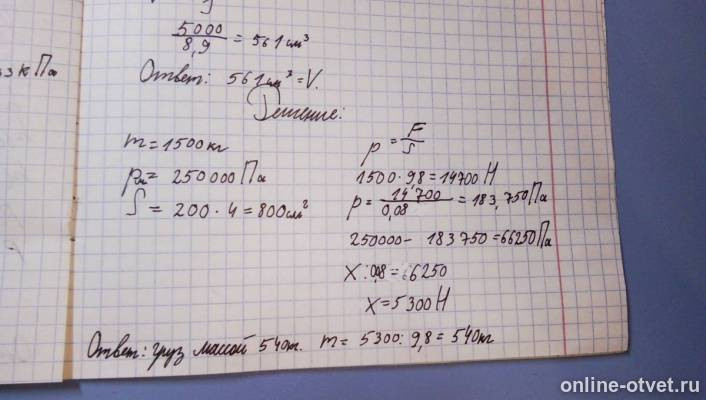 5000/8,9 = 561 см³
33 кПа
Ответ: 561 см³ = V.
Решение:
m = 1500 кг
pм = 250000 Па
S = 200 · 4 = 800 см²
p = F/S
1500 · 9,8 = 14700 Н
p = 14700/0,08 = 183,750 Па
250000 - 183750 = 66250 Па
X : 0,8 = 66250
X = 5300 Н
Ответ: груз массой 540 кг. m = 5300 : 9,8 = 540 кг
online-otvet.ru